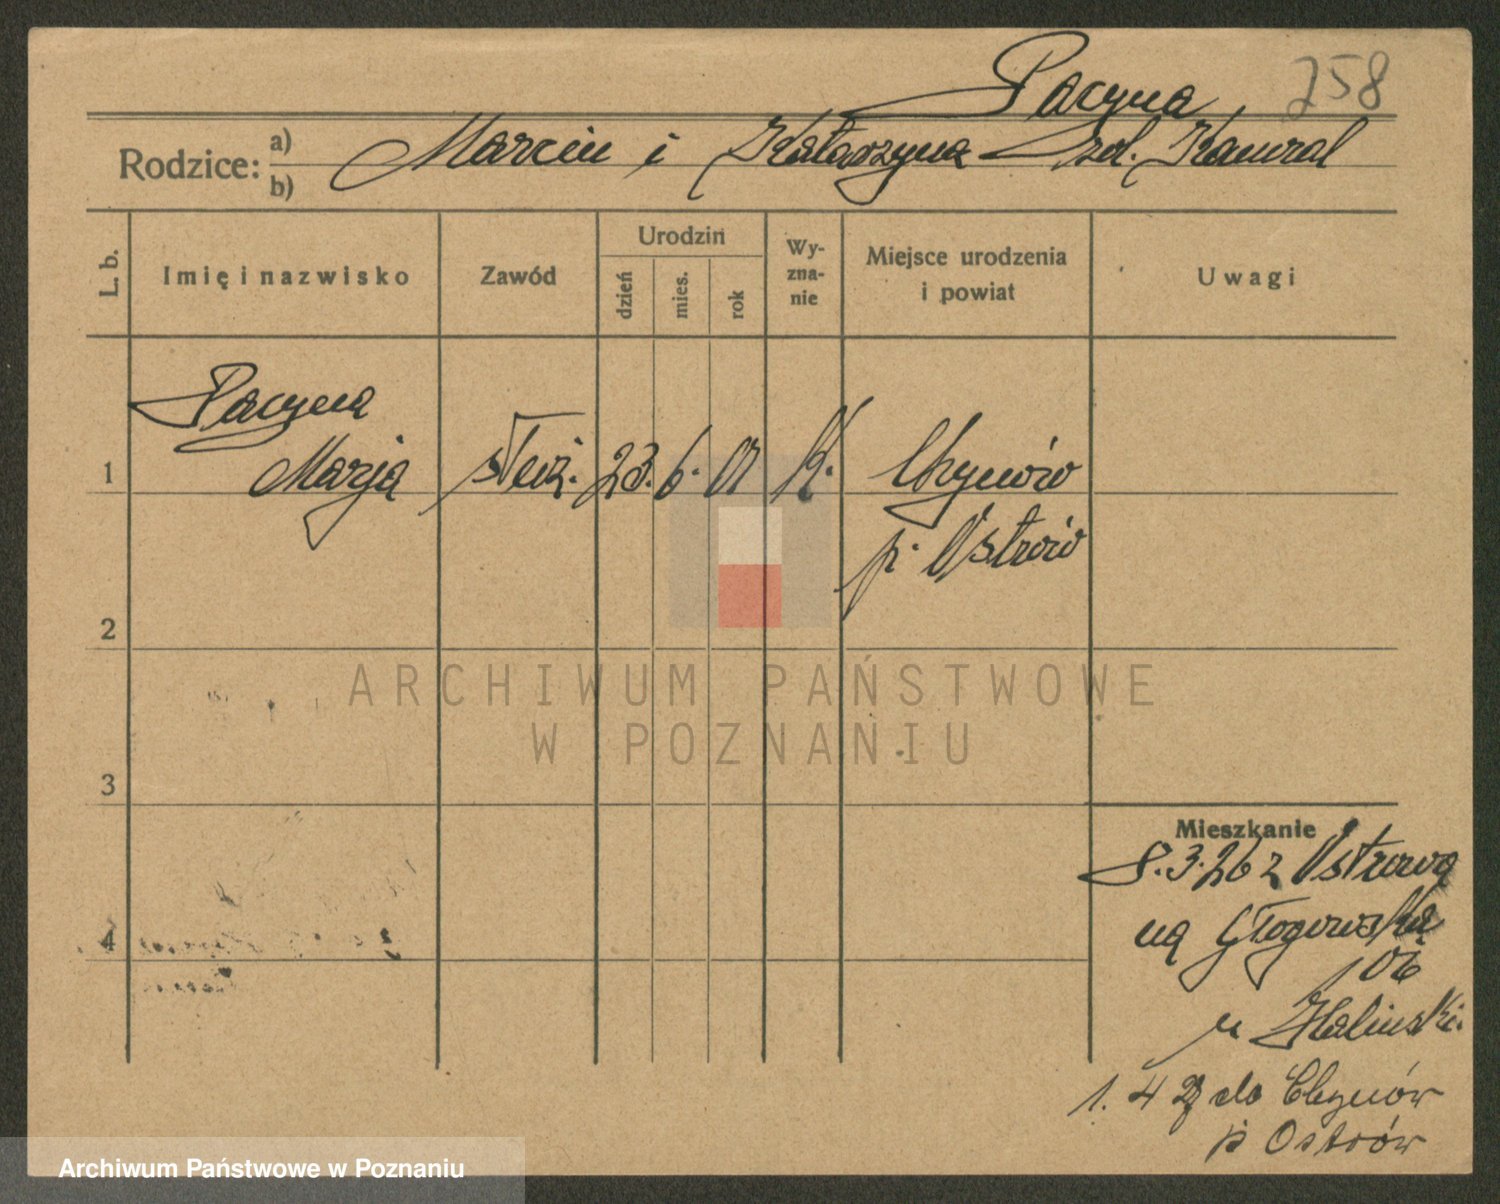 Pacyna 258
Rodzice: a) b) Marcin i Katarzyna
L. b.
Imię i nazwisko
Zawód
Urodzin
dzień
mies.
rok
Wy-
zna-
nie
Miejsce urodzenia
i powiat
Uwagi
Pacyna
Marja
służ.
23. 6. 01
k.
Chynów
p. Ostrów
1
2
3
4
Mieszkanie
8.3.26 z Ostrowa
na Głogowska
106
u
1. 4 do Chynów
p Ostrów
ARCHIWUM PAŃSTWOWE
W POZNANIU
Archiwum Państwowe w Poznaniu